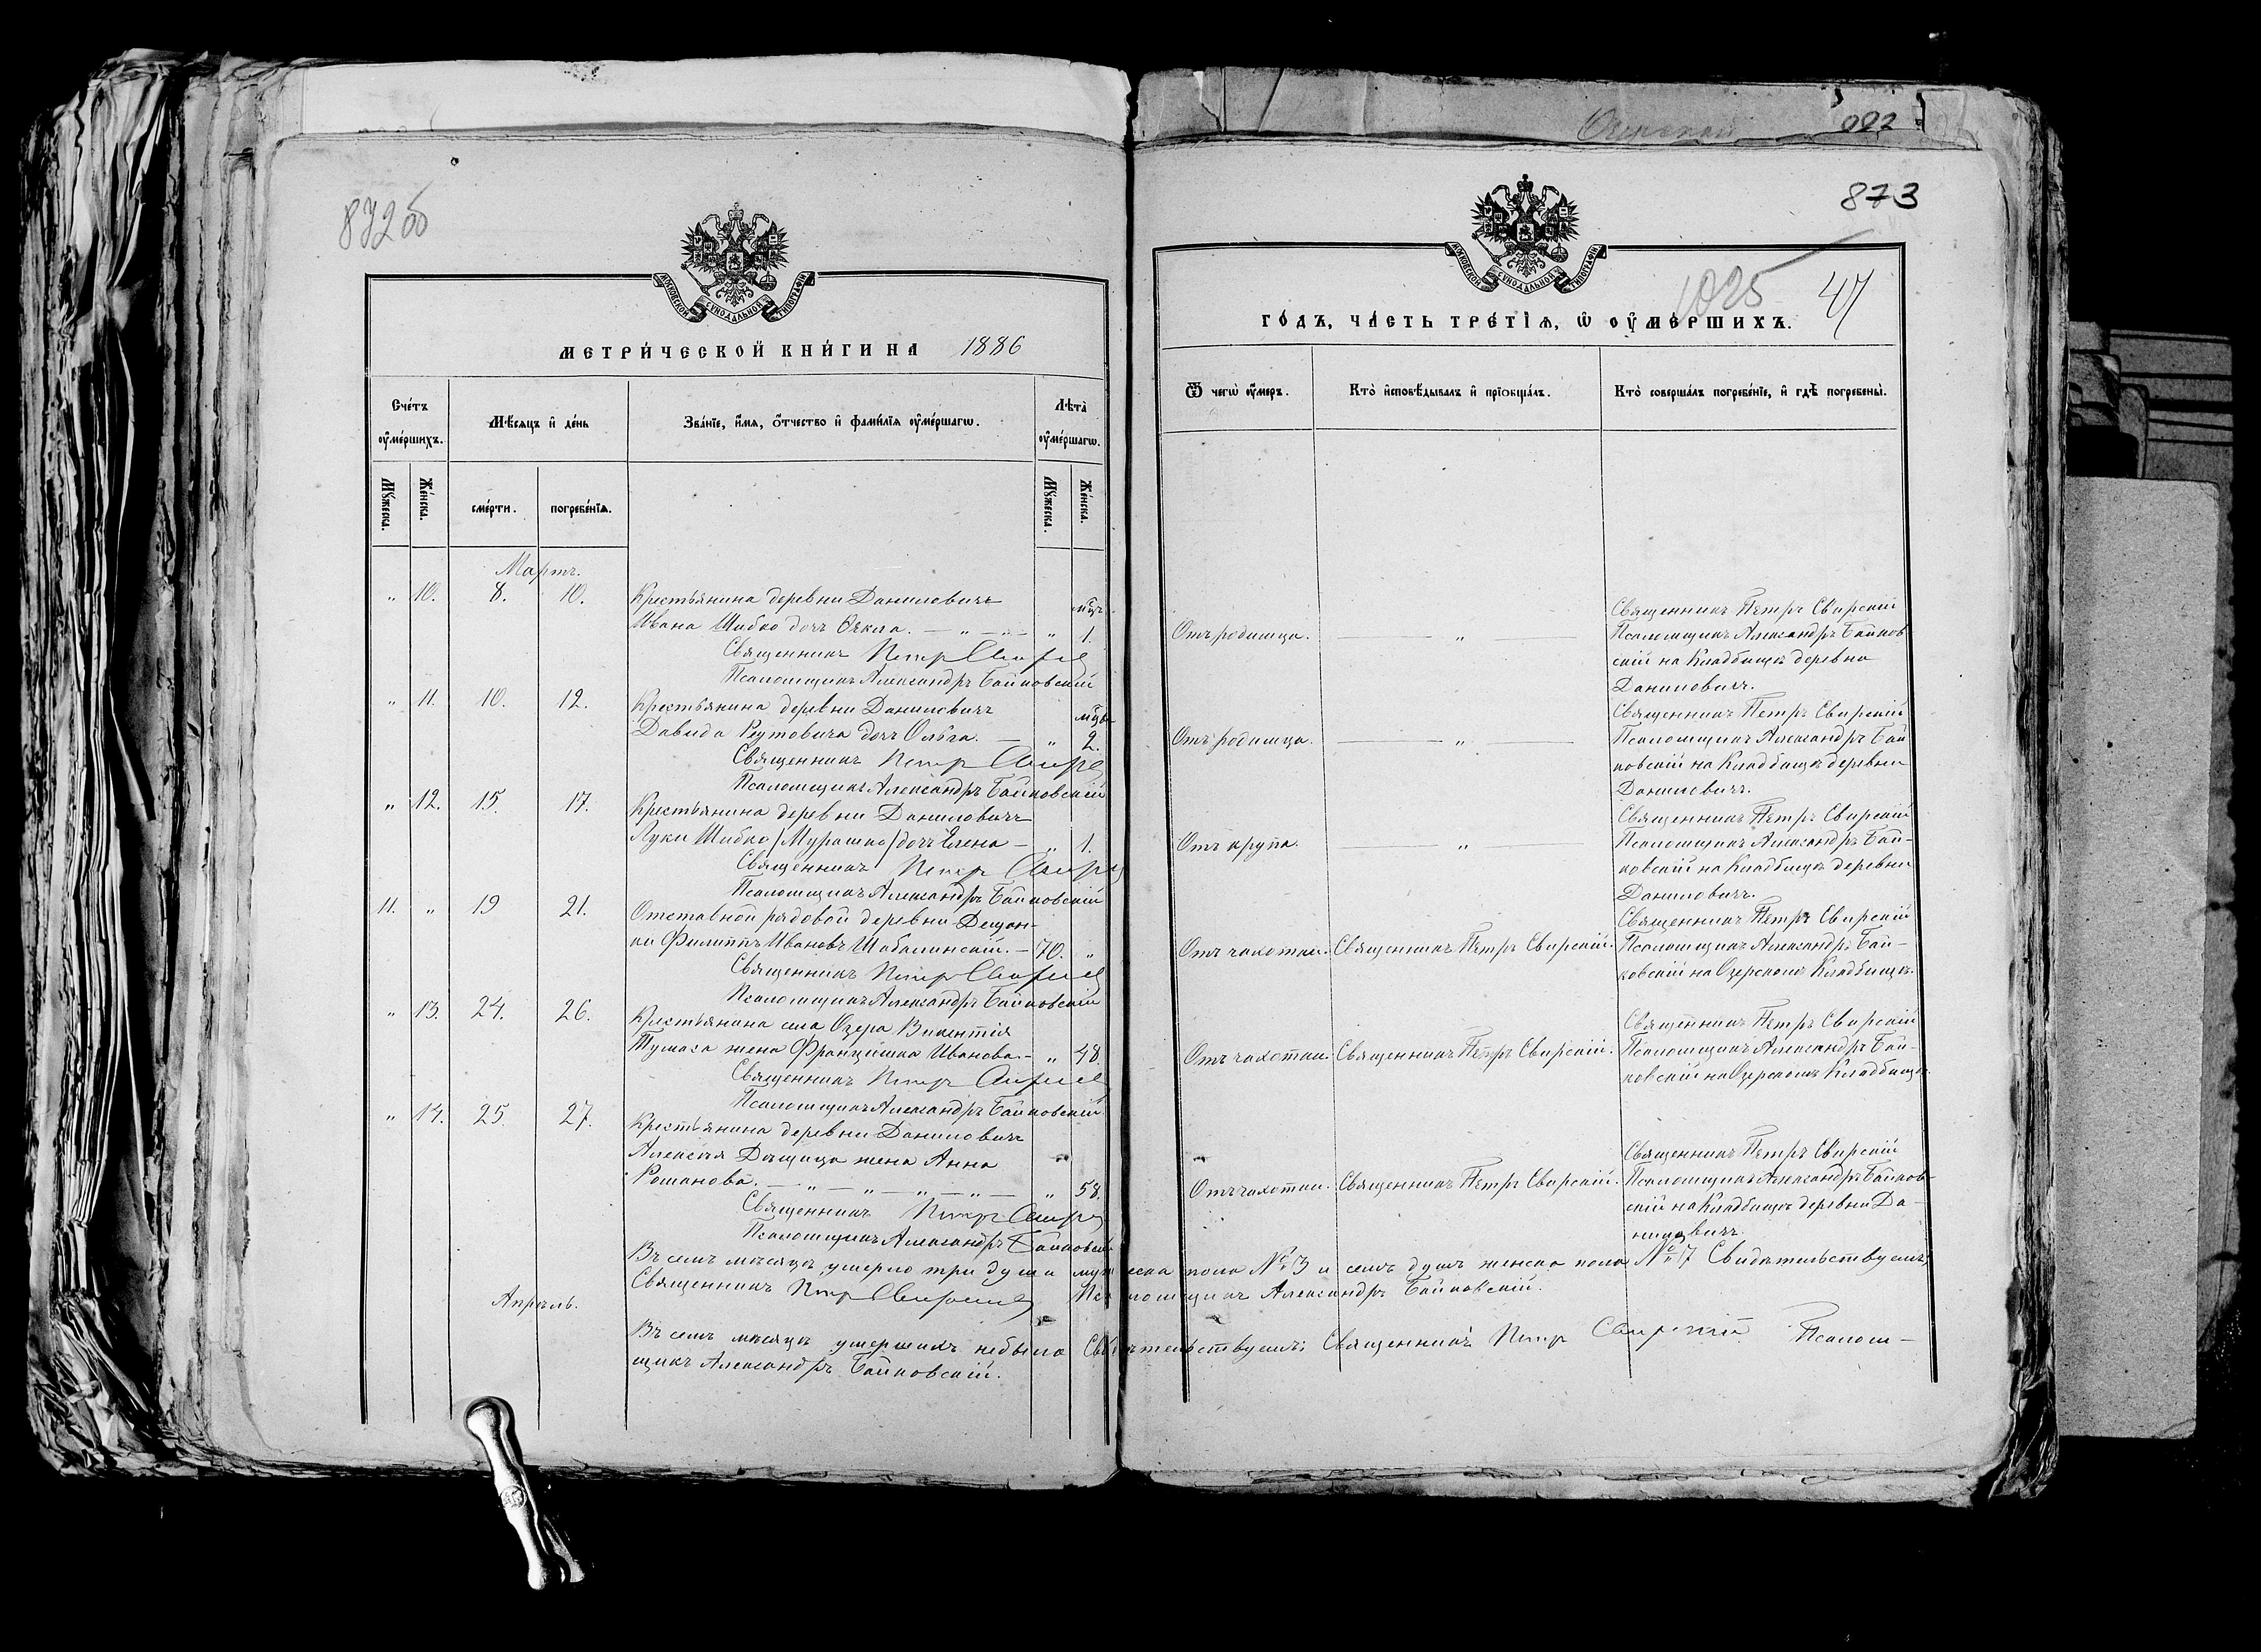 872об
МОСКОВСКОЙ СУНОДАЛЬНОЙ ТИПОГРАФІИ
МЕТРИ́ЧЕСКОЙ КНИ́ГИ НА 1886
Сче́тъ ᲂу҆ме́ршихъ.
Мѣ́сяцъ и҆ де́нь
Зва́нїе, и҆́мѧ, ѻ҆́тчество и҆ фами́лїѧ ᲂу҆ме́ршагѡ.
Лѣта̀ ᲂу҆ме́ршагѡ.
Мꙋ́жеска.
Же́нска.
сме́рти.
погребе́нїѧ.
Мꙋ́жеска.
Же́нска.
Мартъ.
„ 10. 8. 10. Крестьянина деревни Даниловичъ мѣц.
Ивана Шибко дочь Ѳекла. — „ — „ 1.
Священникъ Петръ Свирскій
Псаломщикъ Александръ Байковскій
„ 11. 10. 12. Крестьянина деревни Даниловичъ мѣц.
Давида Реутовича дочь Ольга. — „ 2.
Священникъ Петръ Свирскій
Псаломщикъ Александръ Байковскій
„ 12. 15. 17. Крестьянина деревни Даниловичъ
Луки Шибко /Мурашко/ дочь Елена — „ 1.
Священникъ Петръ Свирскій
Псаломщикъ Александръ Байковскій
11. „ 19 21. Отставной рядовой деревни
Филиппъ Ивановъ Шабалинскій. — 70. „
Священникъ Петръ Свирскій
Псаломщикъ Александръ Байковскій
„ 13. 24. 26. Крестьянина села Озера Викентія
Тумаса жена Францишка Иванова. — „ 48
Священникъ Петръ Свирскій
Псаломщикъ Александръ Байковскій
„ 14. 25. 27. Крестьянина деревни Даниловичъ
Алексѣя жена Анна
Романова. — „ — „ — „ — „ — „ 58.
Священникъ Петръ Свирскій
Псаломщикъ Александръ Байковскій
Въ семъ мѣсяцѣ умерло три души мужеска пола № 3 и семь душъ женска пола № 7 Свидѣтельствуемъ;
Священникъ Петръ Свирскій Псаломщикъ Александръ Байковскій.
Апрѣль.
Въ семъ мѣсяцѣ умершихъ небыло Свидѣтельствуемъ; Священникъ Петръ Свирскій Псалом-
щикъ Александръ Байковскій.
873
МОСКОВСКОЙ СУНОДАЛЬНОЙ ТИПОГРАФІИ
1025 47
ГО́ДЪ, ЧА́СТЬ ТРЕ́ТЇѦ, Ѡ҆ ОУ҆МЕ́РШИХЪ.
Ѿ чегѡ̀ ᲂу҆́меръ.
Кто̀ и҆сповѣ́дывалъ и҆ прїѻбща́лъ.
Кто̀ соверша́лъ погребе́нїе, и҆ гдѣ̀ погребены̀.
Отъ родимца. — „ — Священникъ Петръ Свирскій
Псаломщикъ Александръ Байков
скій на Кладбищѣ деревни
Даниловичъ.
Отъ родимца. — „ — Священникъ Петръ Свирскій
Псаломщикъ Александръ Бай
ковскій на Кладбищѣ деревни
Даниловичъ.
Отъ крупа. — „ — Священникъ Петръ Свирскій
Псаломщикъ Александръ Бай-
ковскій на Кладбищѣ деревни
Даниловичъ.
Отъ чахотки. Священникъ Петръ Свирскій. Священникъ Петръ Свирскій
Псаломщикъ Александръ Бай-
ковскій на Озерскомъ Кладбищѣ.
Отъ чахотки. Священникъ Петръ Свирскій. Священникъ Петръ Свирскій
Псаломщикъ Александръ Бай-
ковскій на Озерскомъ Кладбищѣ.
Отъ чахотки. Священникъ Петръ Свирскій. Священникъ Петръ Свирскій
Псаломщикъ Александръ Байков-
скій на Кладбищѣ деревни Да-
ниловичъ.